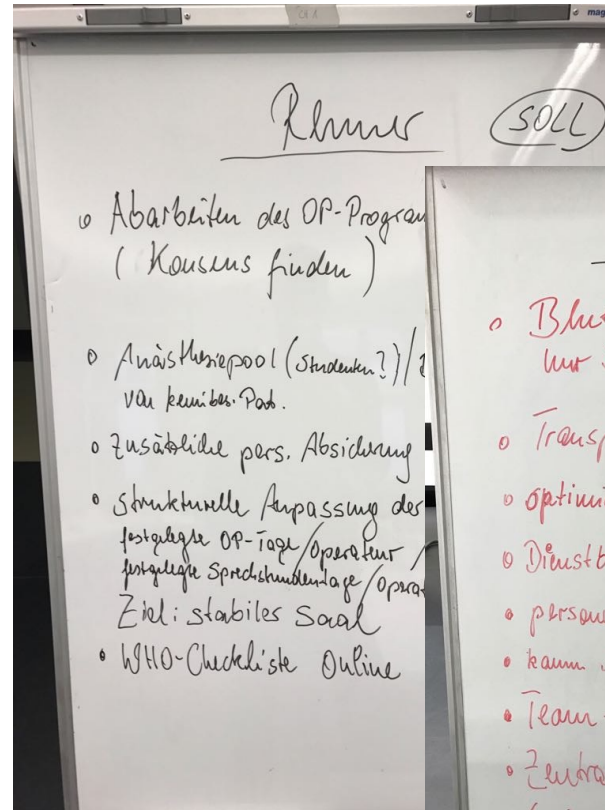 mag
SOLL
Abarbeiten des OP-Program
(Konsens finden)
Anästhesiepool (Studenten?)/
von
zusätzliche pers. Absicherung
strukturelle Anpassung der
festgelegte OP-Tage/Operateur
festgelegte Sprechstundentage/Opera
Ziel: stabiles Saal
WHO-Checkliste Online
Blu
nur
Transp
optimi
Dienstb
person
kaum
Team
Zentra